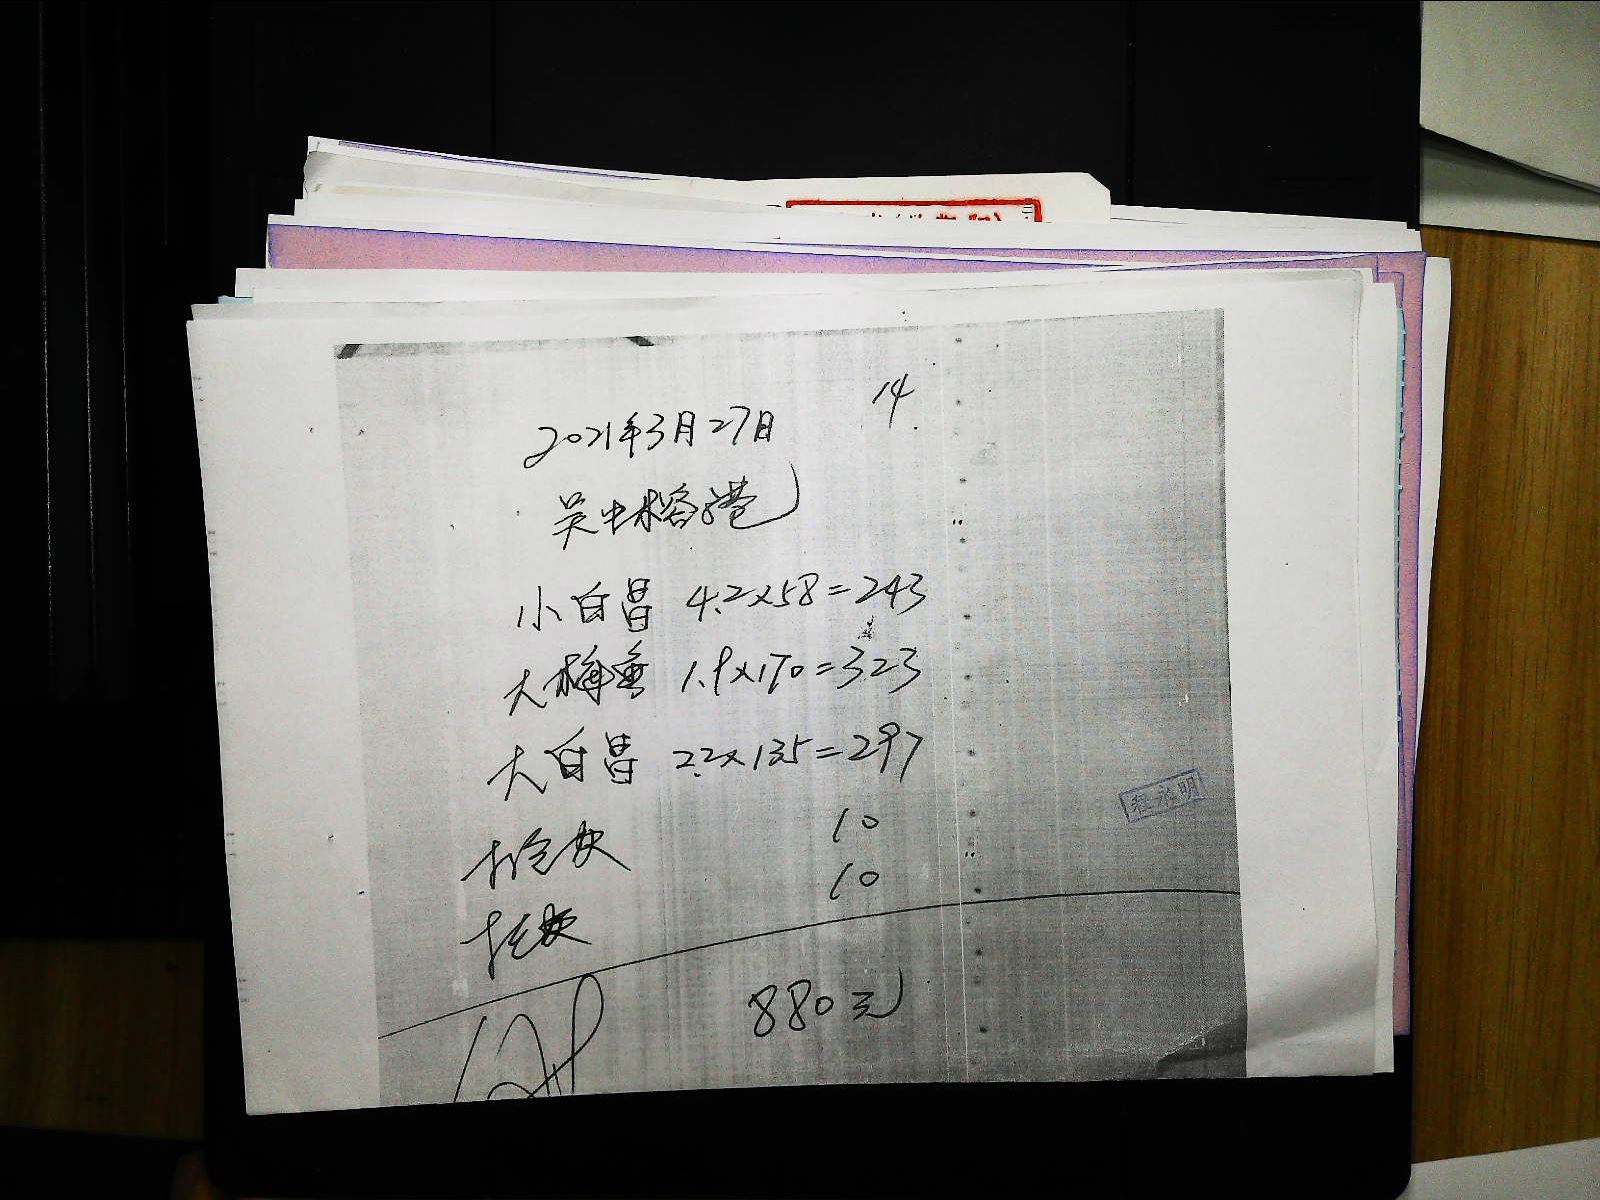 14
2021年3月27日
吴中榕港
小白昌 4.2×58=243
大梅 1.9×170=323
大白昌 2.2×135=297
10
10
880元
程 明